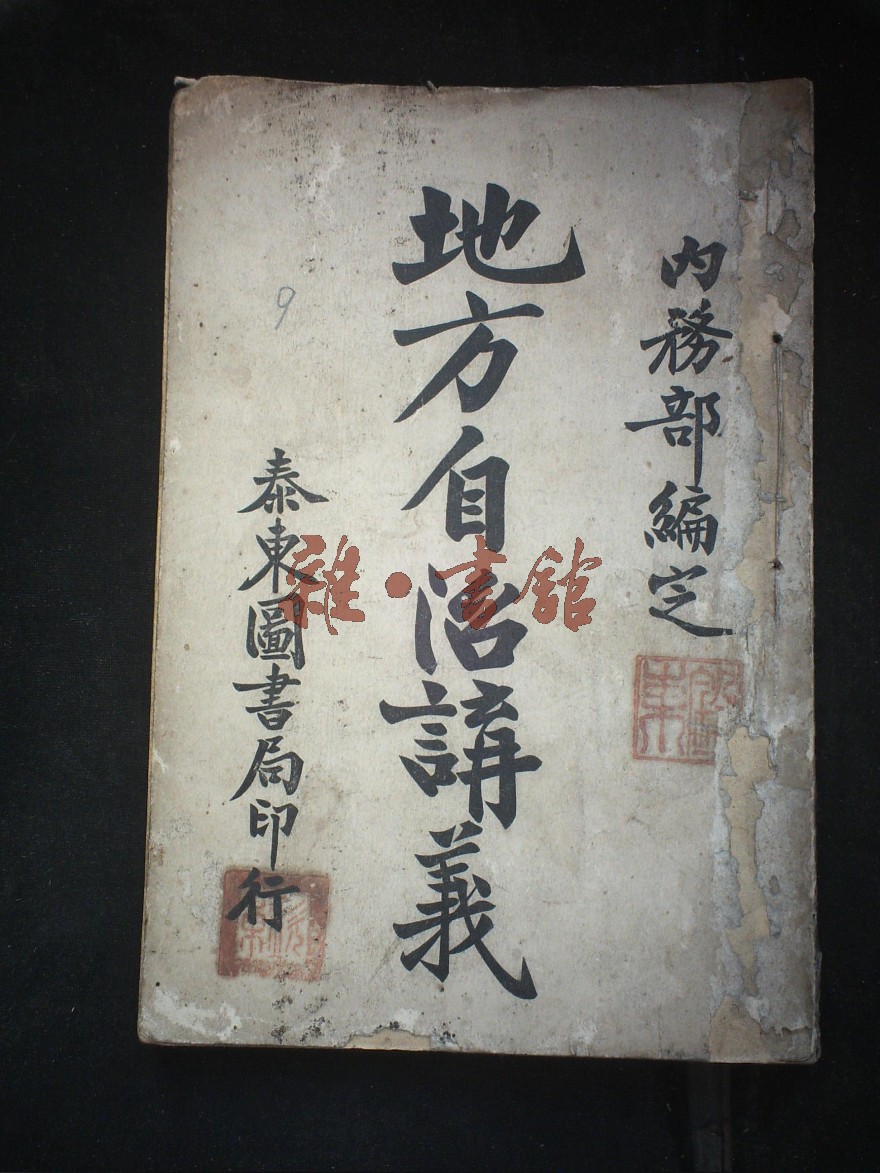 內務部編定
地方自治講義
泰東圖書局印行
9
雜·書館